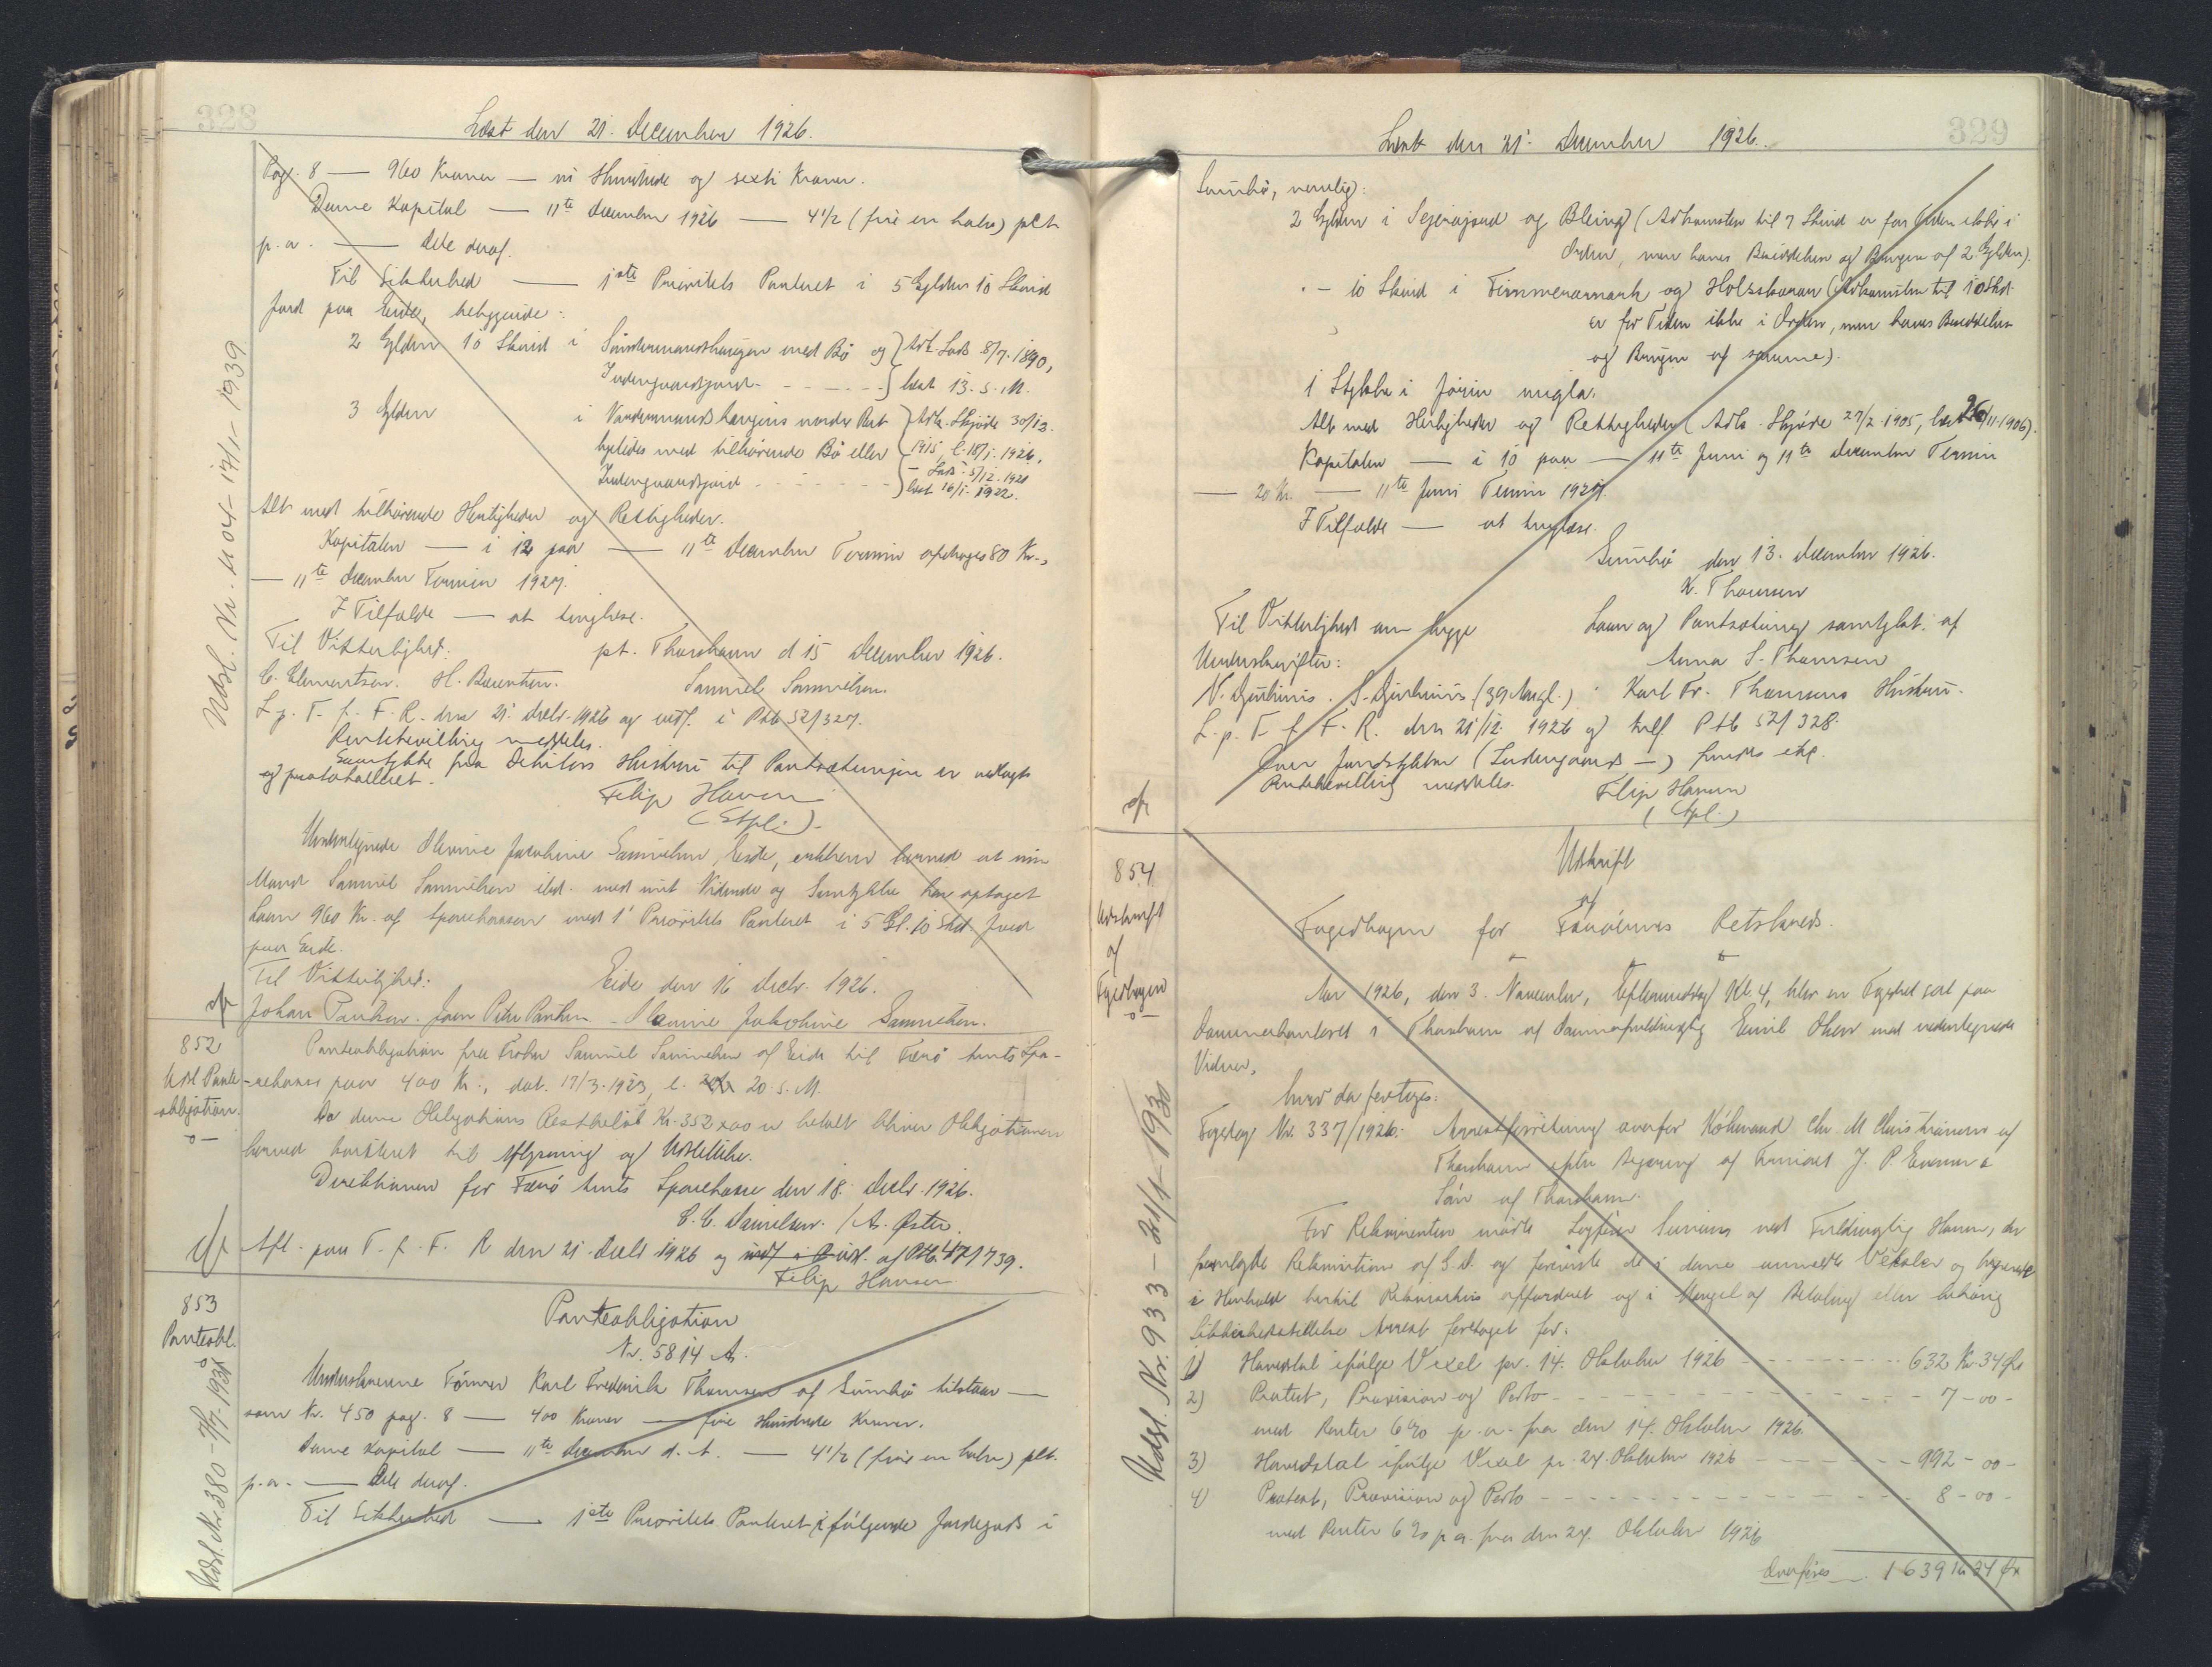 328
Læst den 21. December 1926.
Pag. 8 — 960 Kroner — ni Hundrede og sexti Kroner.
Denne Kapital — 11te December 1926 — 4 1/2 (fire en halv) pCt
p.a. — Dele deraf.
Til Sikkerhed — 1ste Prioritets Panteret i 5 Gylden 10 Skind
Jord paa Eide, beliggende:
2 Gylden 10 Skind i Sunnermandshaugen med Bø og } Adk. Sk. 8/7. 1890,
Indengaardsjord - - - - - - } læst 13. s. M.
3 Gylden i Vardemands haugens nordre Part } Adk. Skjøde 30/12.
ligeledes med tilhørende Bø eller } 1915, l. 18/1. 1926,
Indengaardsjord - - - - - - - } — Sk. 5/12. 1921
læst 16/1. 1922.
Alt med tilhørende Herligheder og Rettigheder.
Kapitalen — i 12 paa — 11te December Termin afdrages 80 Kr.,
— 11te December Termin 1927.
I Tilfælde — at tinglæse.
Til Vitterlighed: pt. Thorshavn d 15 December 1926.
C. Clementsen. H. Berentsen. Samuel Samuelsen.
L. p. T. f. F. R. den 21. Decbr. 1926 og vedf. i Ptb 52/327.
Rentebevilling meddeles.
Samtykke fra Debitors Hustru til Pantsætningen er vedlagt
og protokolleret.
Filip Hansen
(Stpl.).
Undertegnede Olevine Jacobine Samuelsen, Eide, erklærer herved at min
Mand Samuel Samuelsen ibid. med mit Vidende og Samtykke har optaget
Laan 960 Kr. af Sparekassen med 1' Prioritets Panteret i 5 Gl. 10 Skd. Jord
paa Eide.
Til Vitterlighed: Eide den 16 Decbr. 1926.
Johan Poulsen. Joen Peter Poulsen - Olevine Jakobine Samuelsen.
Udsl. Nr. 1104 - 17/1 - 1939
852
Udsl Pante
obligation.
-o-
Panteobligation fra Fisker Samuel Samuelsen af Eide til Færø Amts Spa-
-rekasse paa 400 Kr., dat. 17/3. 1923, l. 20. s. M.
Da denne Obligations Restbeløb Kr. 352 x 00 er betalt bliver Obligationen
herved kvitteret til Aflysning og Udslettelse.
Direktionen for Færø Amts Sparekasse den 18. Decbr. 1926.
C. C. Danielsen. / A. Øster.
Afl. paa T. f. F. R den 21. Decbr 1926 og udsl. af Ptb 47/739.
Filip Hansen
853
Panteobl.
-o-
Udsl. Nr. 380 - 7/7 - 1931
Panteobligation
Nr. 5814 A.
Underskrevne Tømrer Karl Frederik Thomsen af Sumbø tilstaar —
som Nr. 450 pag. 8 — 400 Kroner — fire Hundrede Kroner.
Denne Kapital — 11te December d. A. — 4 1/2 (fire en halv) pCt.
p.a. — Dele deraf.
Til Sikkerhed — 1ste Prioritets Panteret i følgende Jordegods i
329
Læst den 21. December 1926.
Sumbø, nemlig:
2 Gylden i Sejerajord og Bleing (Adkomsten til 7 Skind er for Tiden ikke i
Orden, men haves Besiddelsen og Brugen af 2 Gylden).
- 10 Skind i Timmeramark og Holsskoran (Adkomsten til 10 Skd.
er for Tiden ikke i Orden, men haves Besiddelsen
og Brugen af samme).
1 Stykke i
Alt med Herligheder og Rettigheder (Adk. Skjøde 27/2. 1905, læst 26/11. 1906).
Kapitalen — i 10 paa — 11te Juni og 11te December Termin
— 20 Kr. — 11te Juni Termin 1927.
I Tilfælde — at tinglæse.
Sumbø den 13. December 1926.
K. Thomsen
Til Vitterlighed om begge Laan og Pantsætning samtykt. af
Underskrifter: Anna S. Thomsen
N. Djurhuus. S. Djurhuus (39 Aargl.) Karl Fr. Thomsens Hustru.
L. p. T. f. F. R. den 21/12. 1926 og tilf. Ptb 52/328.
Over Jordstykker (Indengaards —) findes ekp.
Rentebevilling meddeles. Filip Hansen
(Stpl.)
854
Udskrift
af
Fogedbogen
-o-
Udsl. Nr. 933 - 21/1 - 1930
Udskrift
af
Fogedbogen for Færøernes Retskreds.
Aar 1926, den 3. November, Eftermiddag Kl. 4, blev en Fogedret sat paa
Dommerkontoret i Thorshavn af Dommerfuldmægtig Emil Olsen med undertegnede
Vidner,
hvor da foretoges:
Fogedsag Nr. 337/1926: Arrestforretning overfor Købmand Chr M Christiansen af
Thorshavn efter Begæring af Firmaet J. P. Evensen &
Søn af Thorshavn.
For Rekvirenten mødte Sagfører ved Fuldmægtig Hansen, der
fremlagde Rekvisition af G. D. og foreviste de i denne anmeldte Veksler og begærede
i Henhold hertil Rekvisitus affordret og i Mangel af Betaling eller behørig
Sikkerhedsstillelse Arrest foretaget for:
1) Hovedstol ifølge Vexel pr. 14. Oktober 1926 - - - - - - - - 632 Kr. 34 Øre
2) Protest, Provision og Porto - - - - - - - - - - - - - 7 - 00 -
med Renter 6% p. a. fra den 14. Oktober 1926.
3) Hovedstol ifølge Vexel pr. 24. Oktober 1926 - - - - - - - 992 - 00 -
4) Protest, Provision og Porto - - - - - - - - - - - - - 8 - 00 -
med Renter 6% p a. fra den 24. Oktober 1926
Overføres — 1639 Kr 34 Øre